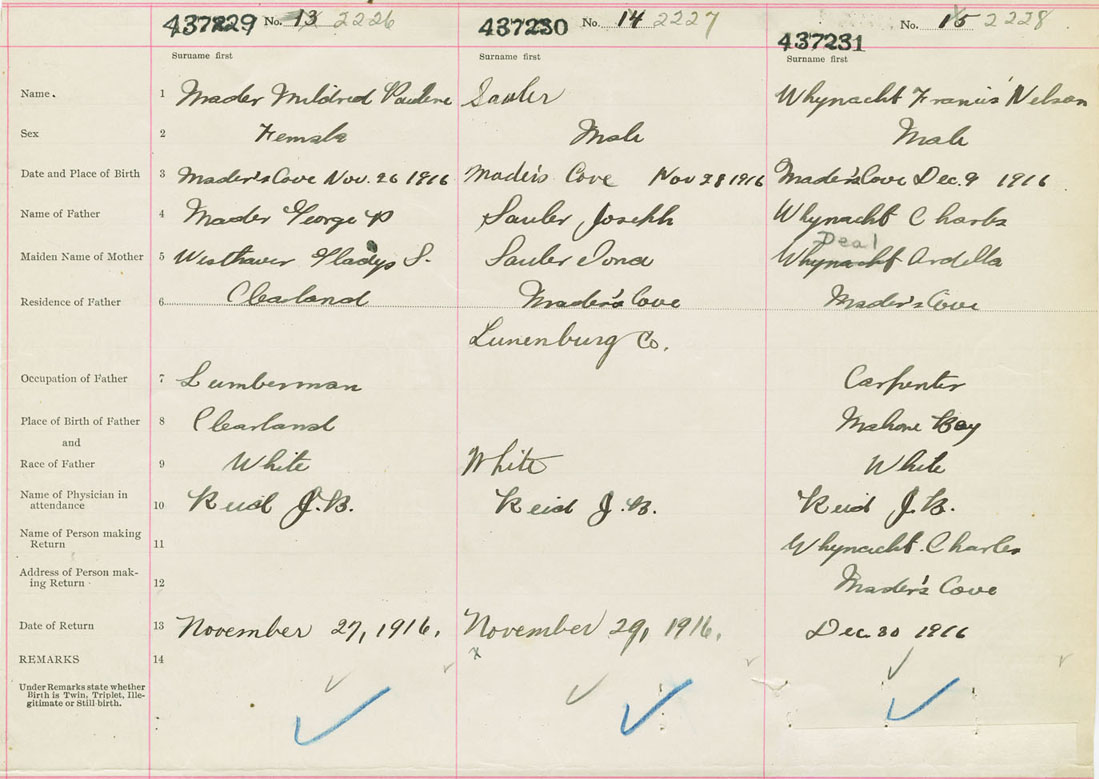 437229 No. 13 2226 437230 No. 14 2227 437231 No. 15 2228
Surname first Surname first Surname first
Name. 1 Mader Mildred Pauline Sauler Whynacht Francis Nelson
Sex 2 Female Male Male
Date and Place of Birth 3 Mader's Cove Nov. 26 1916 Mader's Cove Nov 28 1916 Mader's Cove Dec. 9 1916
Name of Father 4 Mader George P Sauler Joseph Whynacht Charles
Deal
Maiden Name of Mother 5 Westhaver Gladys S. Sauler Iona Whynacht Ardella
Residence of Father 6 Clearland Mader's Cove Mader's Cove
Lunenburg Co.
Occupation of Father 7 Lumberman Carpenter
Place of Birth of Father 8 Clearland Mahone Bay
and
Race of Father 9 White White White
Name of Physician in
attendance 10 Reid J.B. Reid J.B. Reid J.B.
Name of Person making
Return 11 Whynacht. Charles
Address of Person mak-
ing Return 12 Mader's Cove
Date of Return 13 November 27, 1916. November 29, 1916. Dec. 30 1916
REMARKS 14 x
Under Remarks state whether
Birth is Twin, Triplet, Ille-
gitimate or Still-birth.